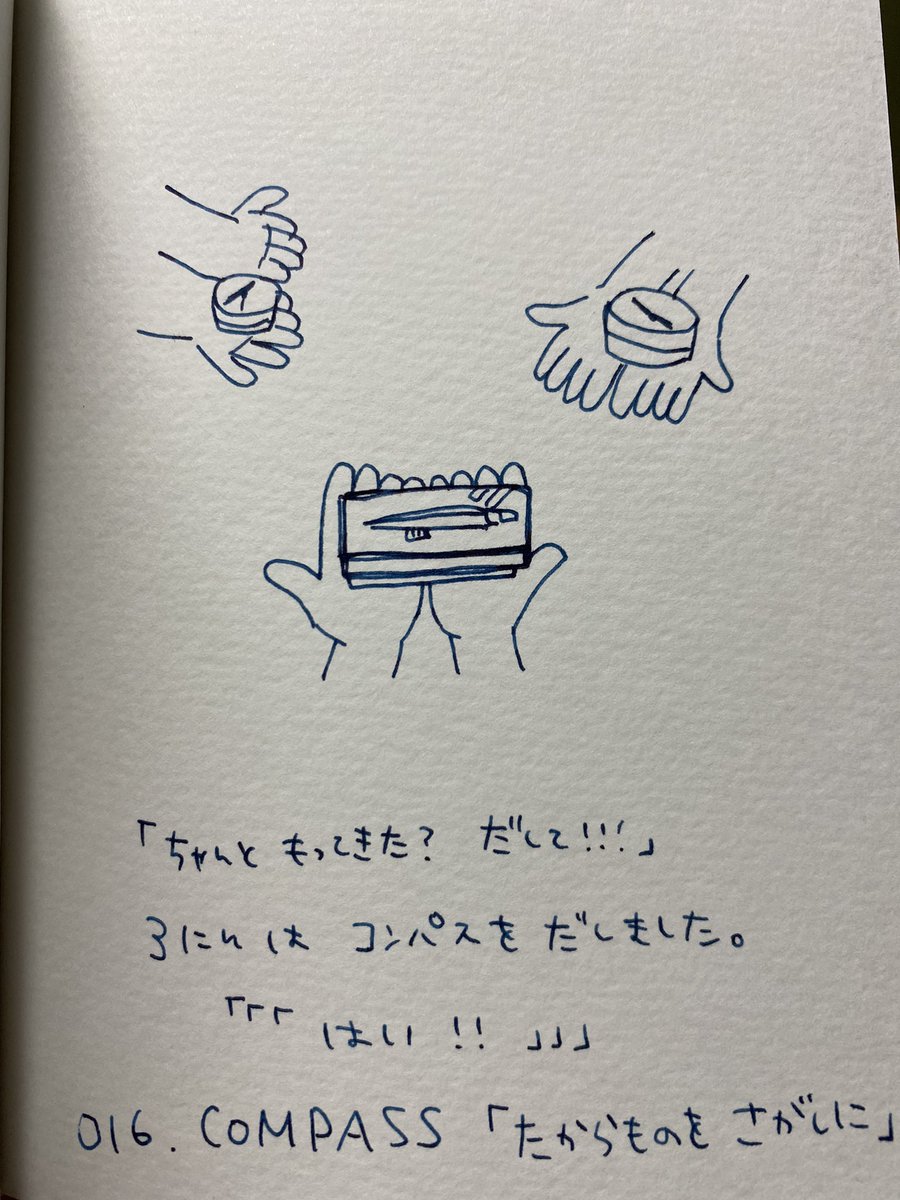 「ちゃんと もってきた? だして!!!」
3にん は コンパスを だしました。
「「「 はい !! 」」」
016. COMPASS 「たからものを さがしに」